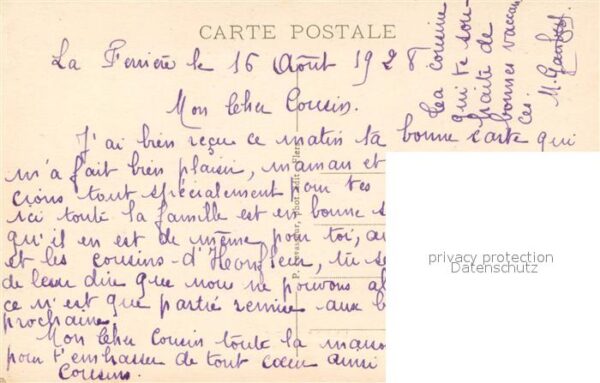 CARTE POSTALE
La Ferrière le 16 Août 1928
Mon Cher Cousin.
J'ai bien reçu ce matin ta bonne carte qui
m'a fait bien plaisir, maman et
cions tout spécialement pour tes
ici toute la famille est en bonne s
qu'il en est de même pour toi, au
et les cousins d'Honfleur, tu se
de leur dire que nous ne pouvons al
ce n'est que partie remise aux
prochaine
Mon Cher Cousin toute la
pour t'embrasser de tout cœur ainsi
Cousins.
ta cousine
qui te sou-
haite de
bonnes vacan
ces
M.
Phot. Edit. Flers
privacy protection
Datenschutz